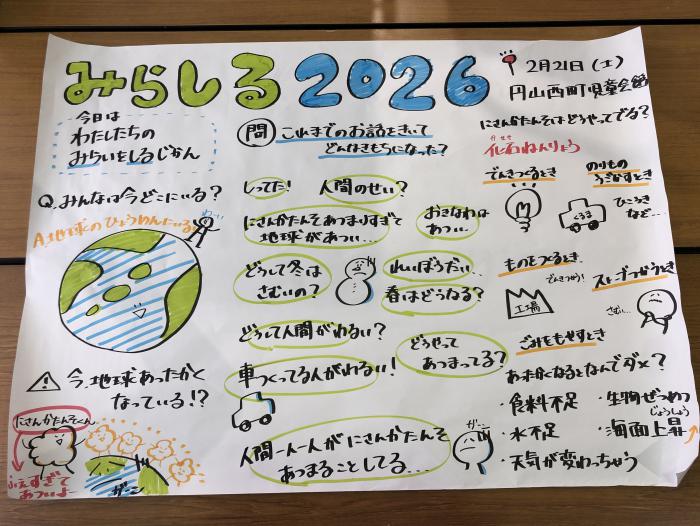 みらしる2026
2月21日(土)
円山西町児童会館
今日は
わたしたちの
みらいをしるじかん
Q.みんなは今どこにいる?
A地球のひょうめんにいる
わーい
⚠今、地球あったかく
なっている!?
にさんかたんそくん
ふえすぎて
あついよー
ガーン
問 これまでのお話をきいて
どんなきもちになった?
しってた!
人間のせい?
にさんかたんそあつまりすぎて
地球があつい…
おきなわは
あつい…
どうして冬は
さむいの?
春はどうなる?
どうして人間がわるい?
どうせって
あつまってる?
車つくってる人がわるい!
人間一人一人がにさんかたんそ
あつまることしてる…
ガーン
にさんかたんそはどうやってでる?
かせき
化石ねんりょう
でんきつくるとき
のりもの
うごかすとき
くるま
ひこうき
など…
ものをつくるとき
でんきつかう!
工場
ストーブつかうとき
さむい…
ごみもやすとき
あたたかくなるとなんでダメ?
・食料不足
・水不足
・天気が変わっちゃう
・生物ぜつめつ
じょうしょう
・海面上昇